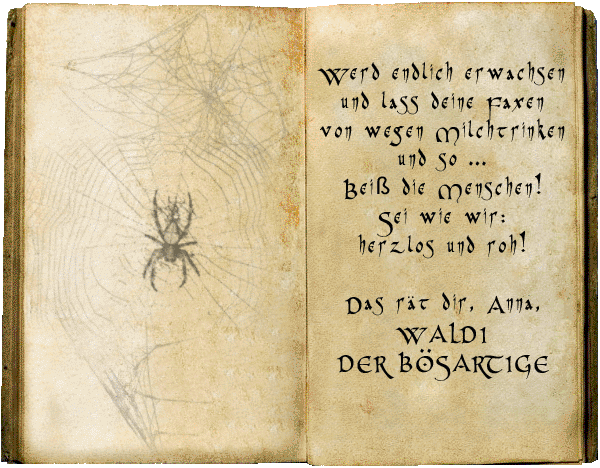 Werd endlich erwachsen
und lass deine Faxen
von wegen Milchtrinken
und so ...
Beiß die Menschen!
Sei wie wir:
herzlos und roh!
Das rät dir, Anna,
WALDI
DER BÖSARTIGE